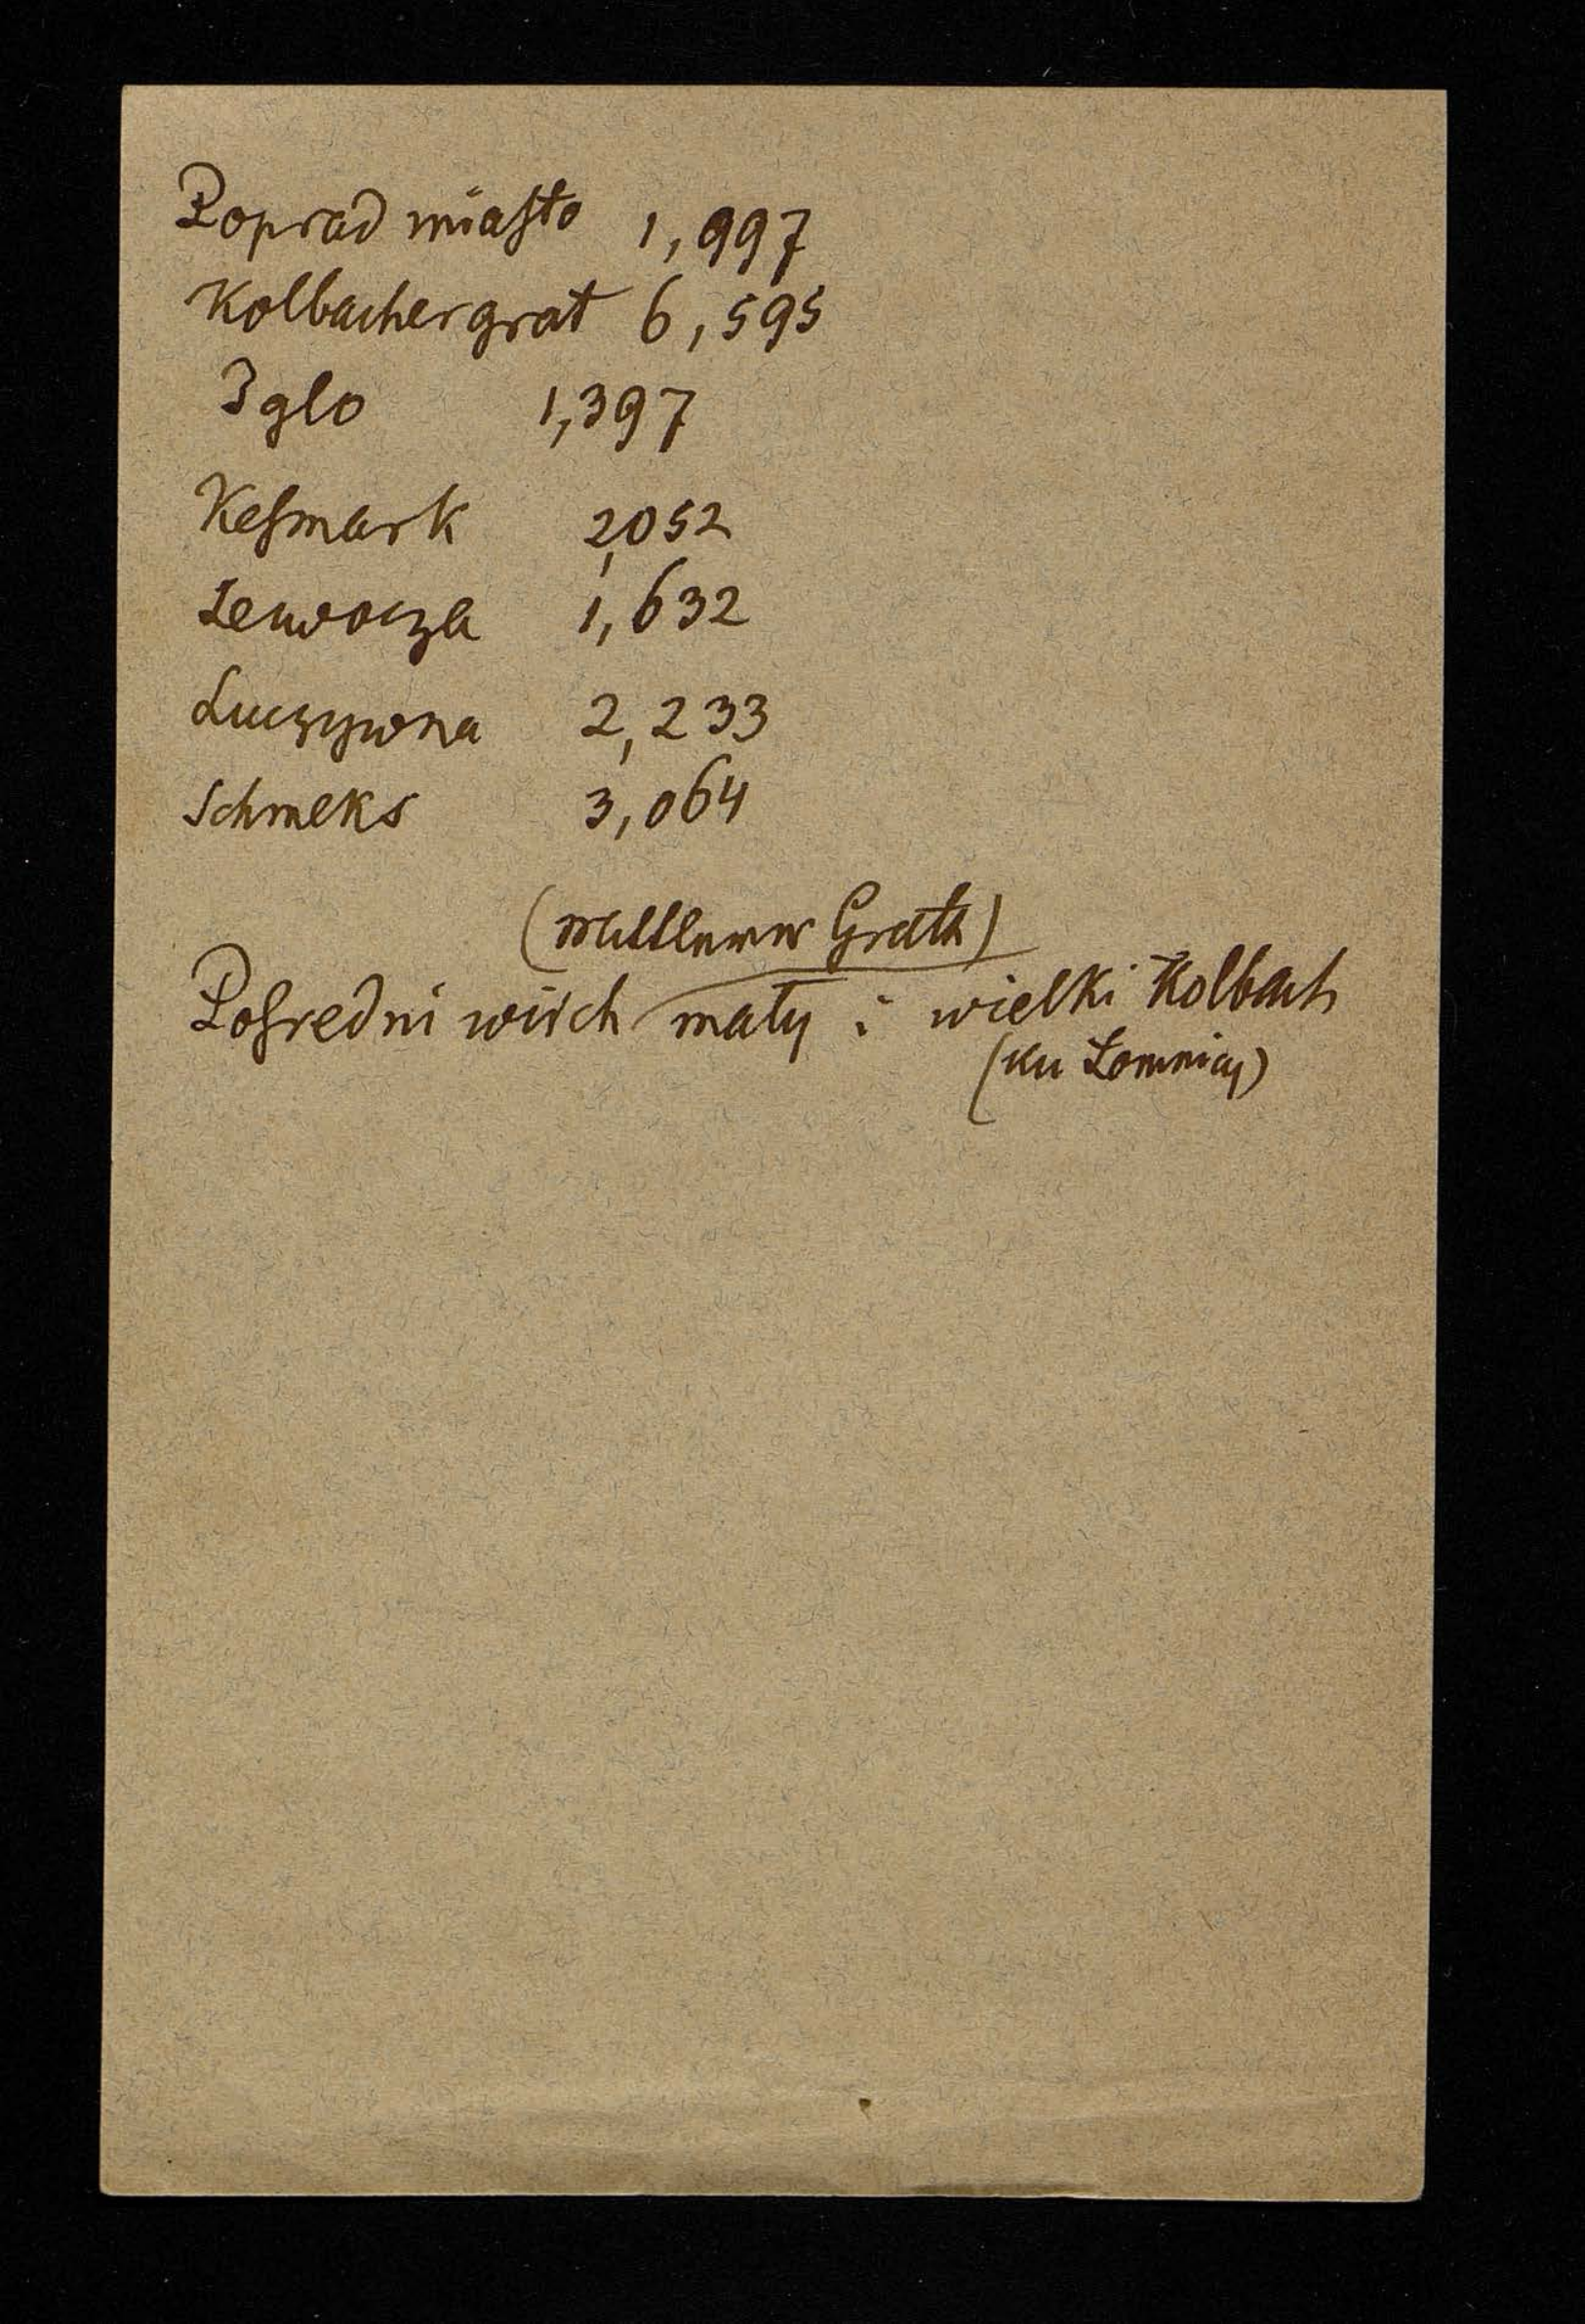 Poprad miasto 1,997
Kolbachergrat 6,595
Iglo 1,397
Kesmark 2,052
Lewocza 1,632
Luczywna 2,233
Schmeks 3,064
(Mittlerer Grath)
Pośredni wirch mały i wielki Kolbach
(ku Łomnicy)